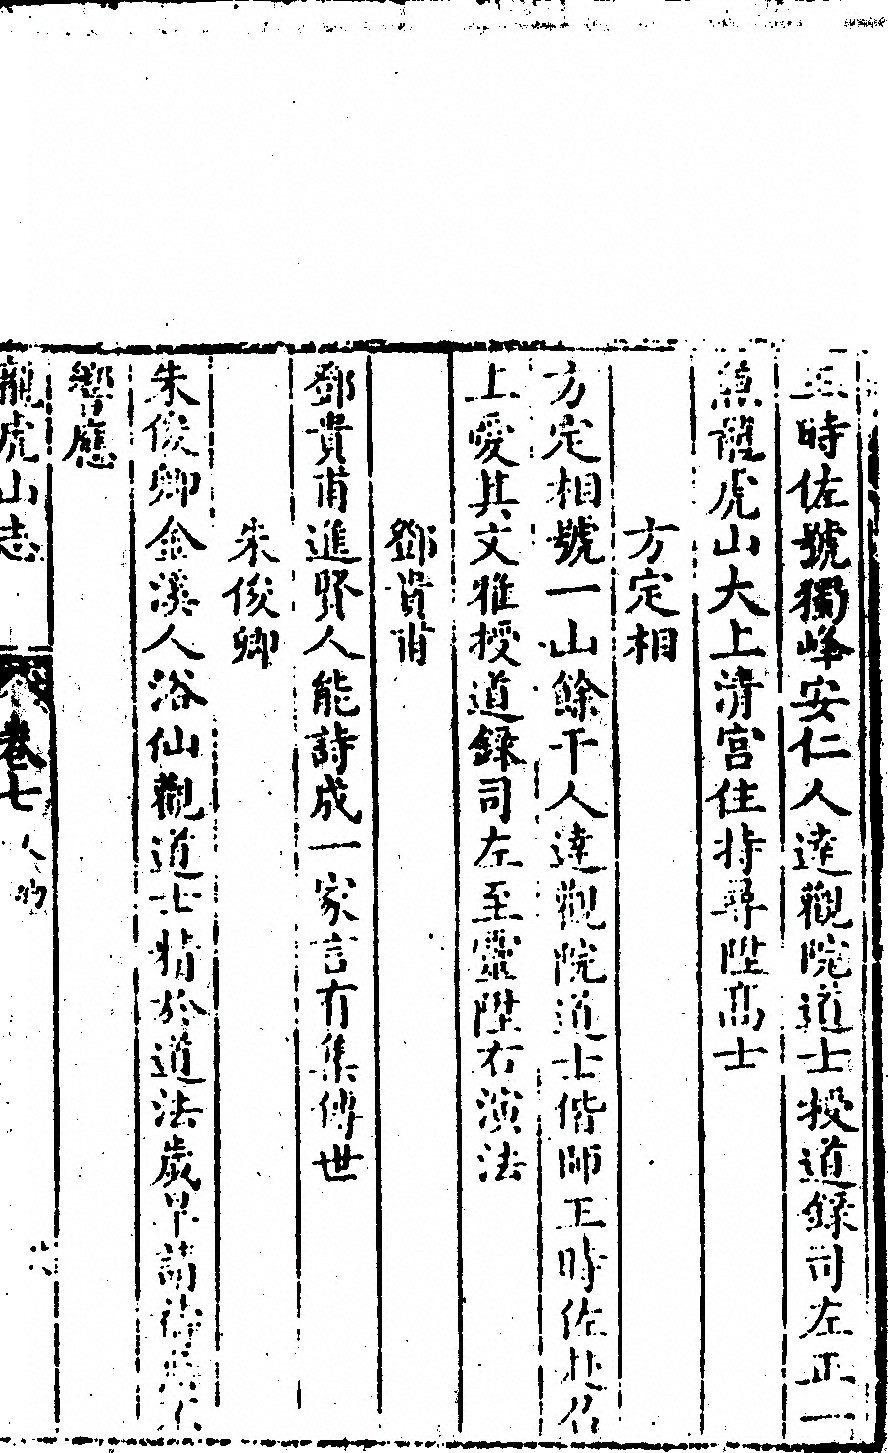 王時佐號獨峰安仁人達觀院道士授道錄司左正一
兼龍虎山大上清宫住持尋陞高士
方定相
方定相號一山餘干人達觀院道士偕師王時佐赴召
上愛其文雅授道錄司左至靈陞右演法
鄧貴甫
鄧貴甫進賢人能詩成一家言有集傳世
朱俊卿
朱俊卿金溪人浴仙觀道士精於道法歲旱請禱無不
響應
龍虎山志 卷七 人物 六